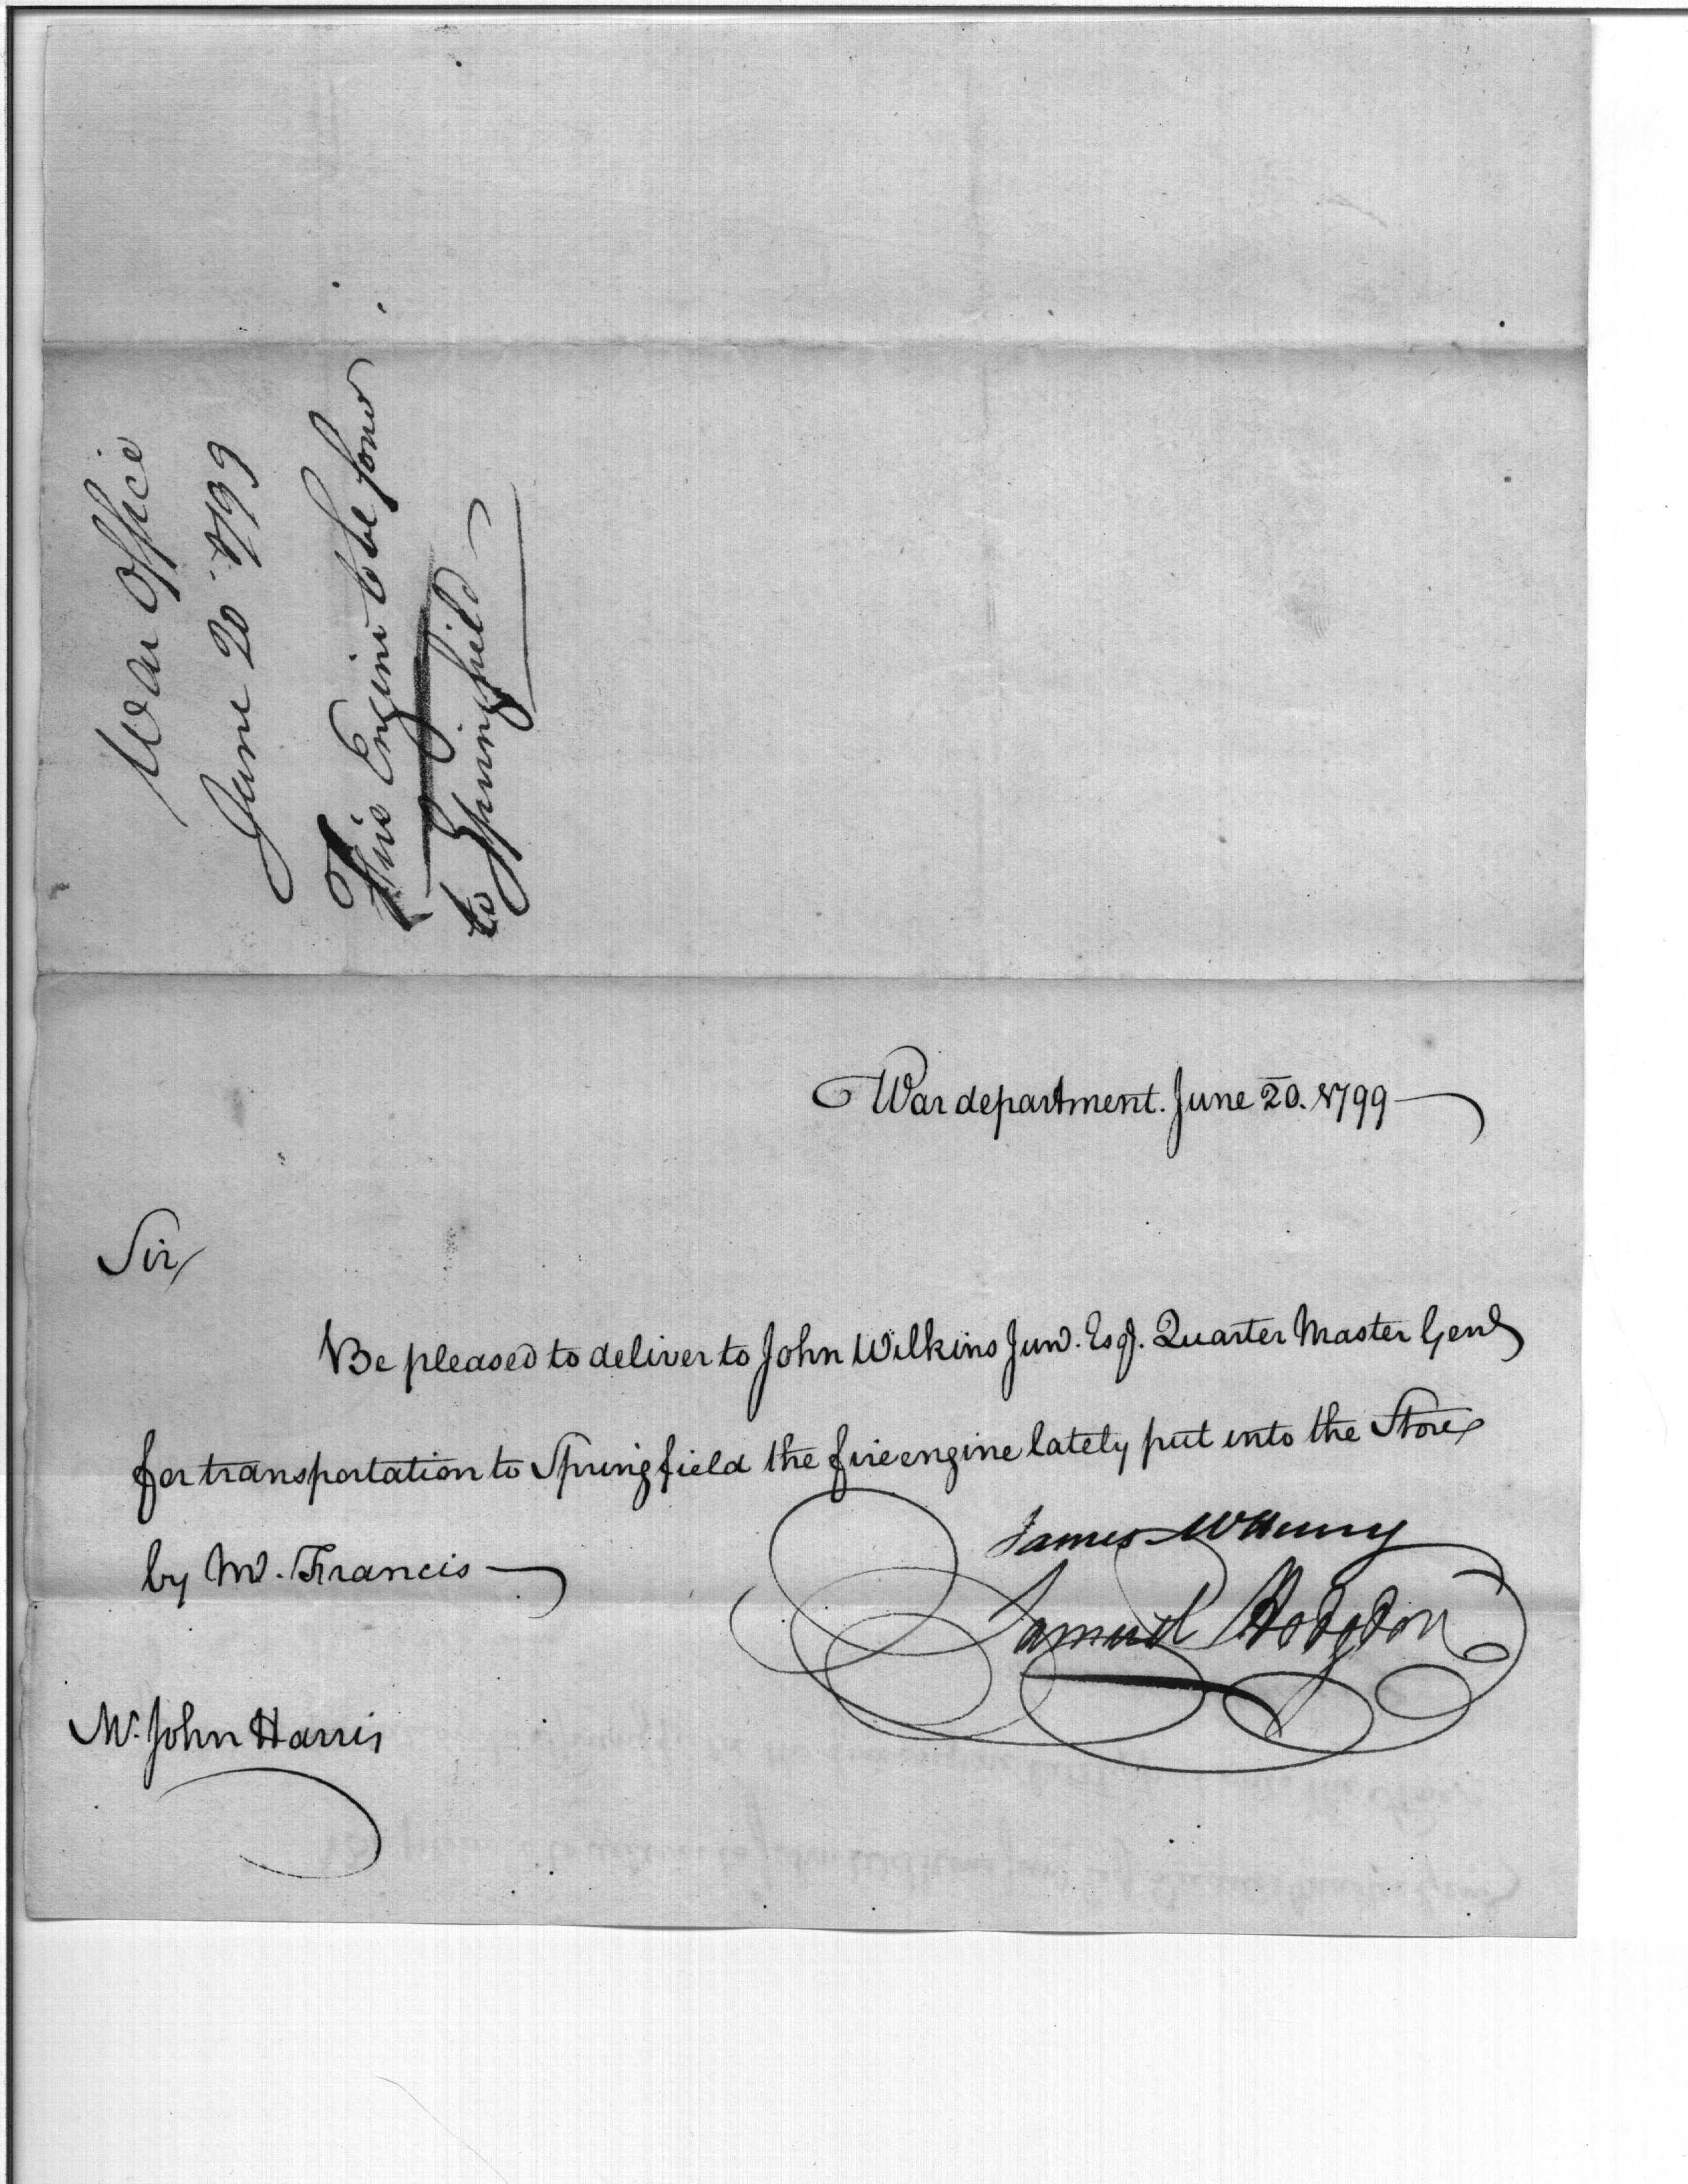 War Office
June 20 1799
Fire Engine to be forw
to Springfield
War department. June 20. 1799
Sir,
Be pleased to deliver to John Wilkins Junr. Esqr. Quarter Master Genl
for transportation to Springfield the fire engine lately put into the Store
by Mr. Francis
James McHenry
Samuel Hodgdon
Mr. John Harris